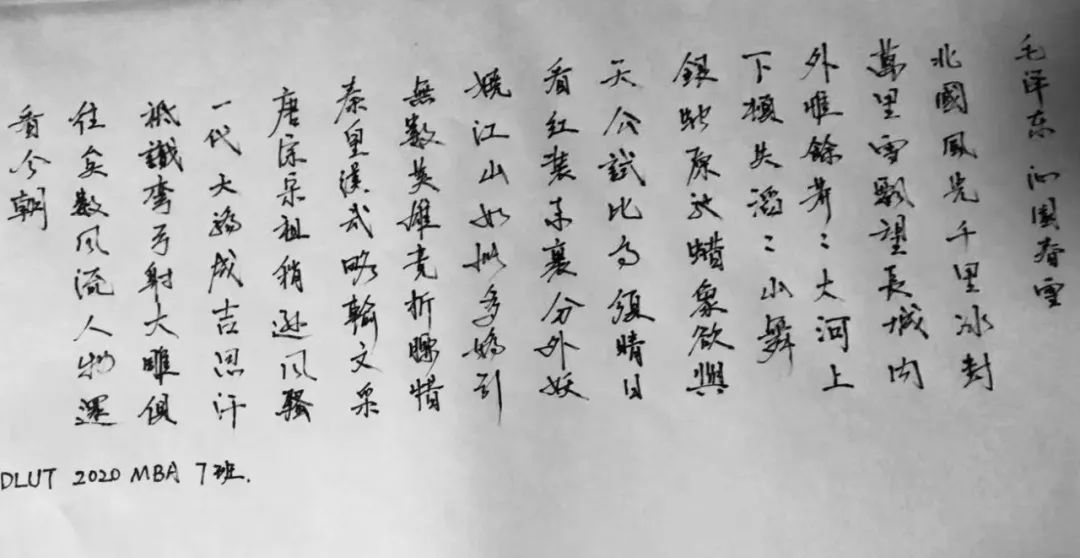 毛泽东 沁園春雪
北國風光千里冰封
萬里雪飄望長城内
外惟餘莽〻大河上
下頓失滔〻山舞
銀蛇原馳蠟象欲與
天公試比高須晴日
看红装素裹分外妖
嬈江山如此多嬌引
無數英雄竞折腰惜
秦皇漢武略輸文采
唐宗宋祖稍遜风騷
一代天驕成吉思汗
祗識彎弓射大雕俱
往矣數风流人物還
看今朝
DLUT 2020 MBA 7班.